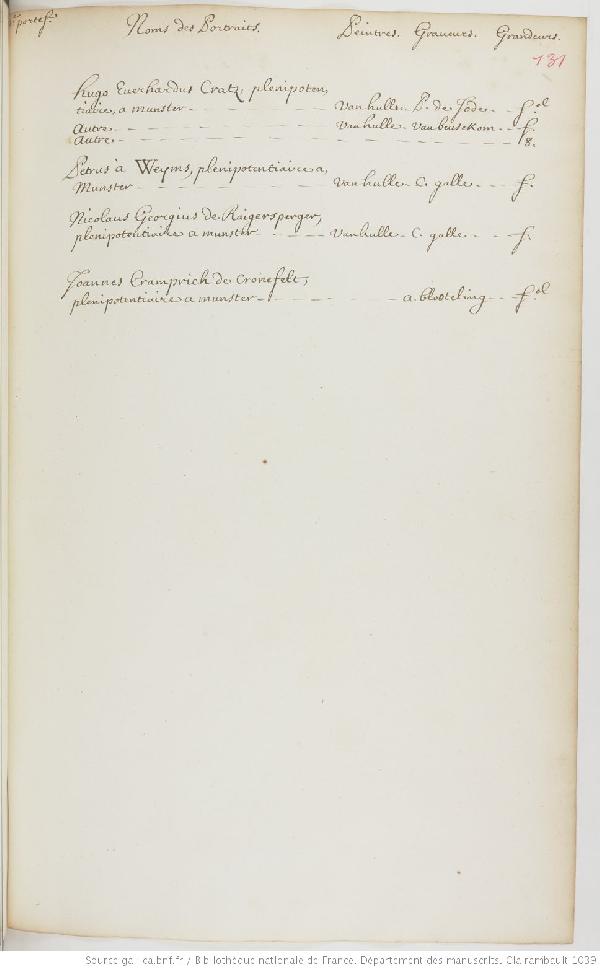 portef. Noms des Portraits. Peintres. Graveurs. Grandeurs.
131
Hugo Everhardus Cratz, plenipoten,
tiaire, a munster - - - Vanhulle - P. de Jode - - f.ol
Autre - - - Vanhulle - Vanbeusekom - - f.
Autre - - - 8.
Petrus a Weyms, plenipotentiaire a,
Munster - - - Vanhulle - C. galle - - f.
Nicolaus Georgius de Raigersperger,
plenipotentiaire a munster - - - Vanhulle - C. galle - - f.
Joannes Cramprich de Cronefelt,
plenipotentiaire a munster - - - a. Bloteling - - f.ol
Source gallica.bnf.fr / Bibliothèque nationale de France. Département des manuscrits. Clairambault 1039